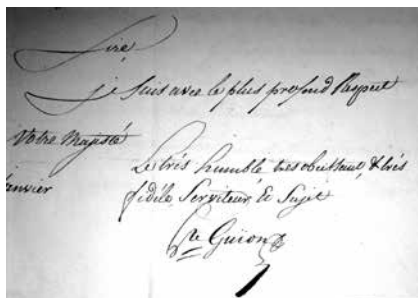 Sire
Je Suis avec le plus profond Respect
Votre Majesté
Le très humble tres obeissant, & très
Janvier
fidèle Serviteur, Et Sujet
Guion